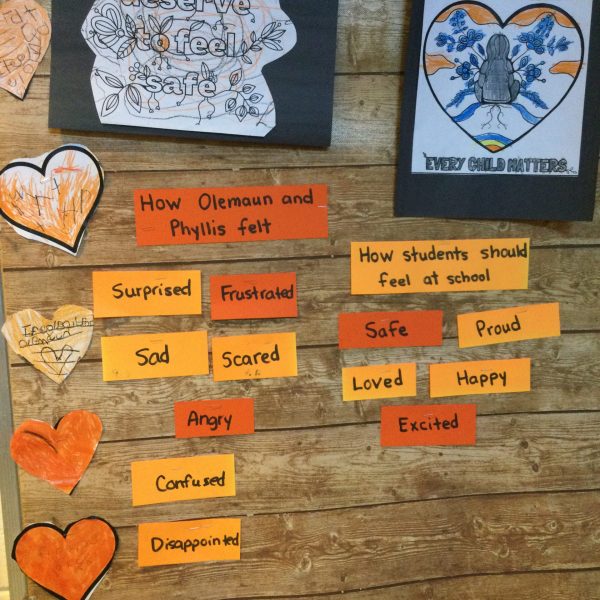 deserve
to feel
safe
EVERY CHILD MATTERS
How Olemaun and
Phyllis felt
Surprised
Frustrated
Sad
Scared
Angry
Confused
Disappointed
How students should
feel at school
Safe
Proud
Loved
Happy
Excited